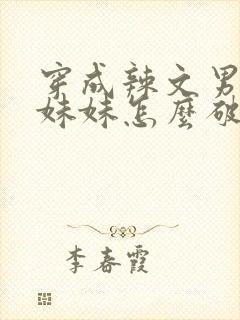 穿成辣文男
妹妹怎麼破
李春霞